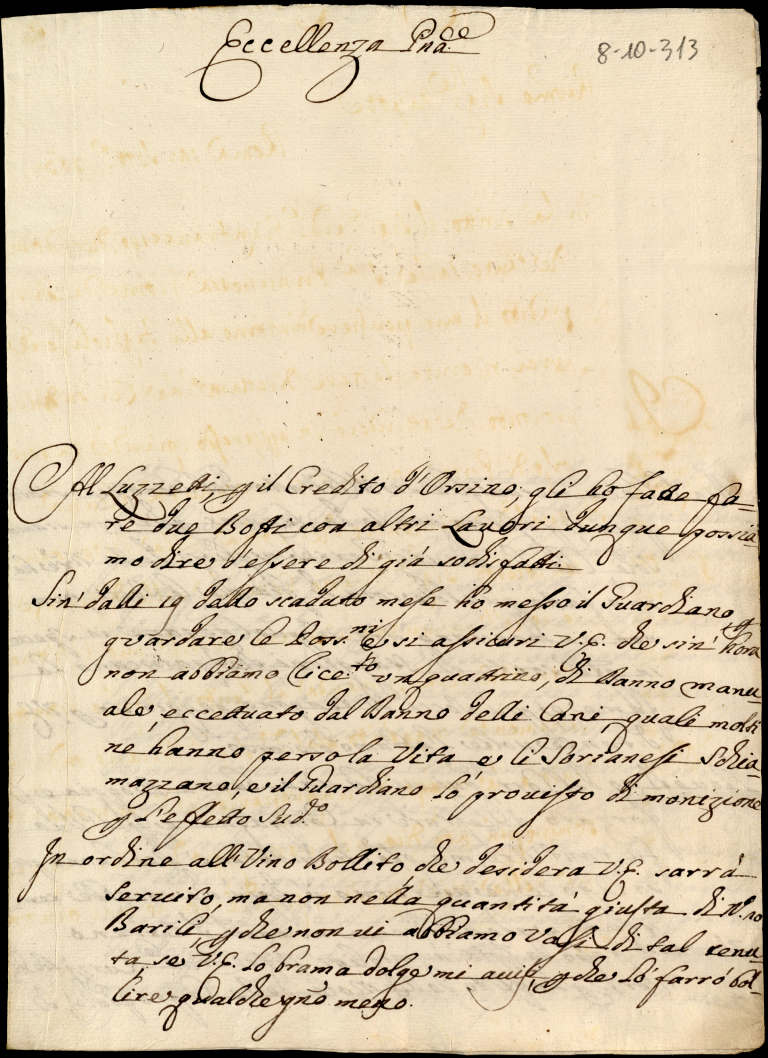 Eccellenza Pñaˡᵉ
8-10-313
Al Luzzetti, p il Credito d'Orsino, gli ho fatte fa=
re due Botti con altri Lavori dunque possia=
mo dire d'essere di già sodisfatti.
Sin' dalli 19 dello scaduto mese ho messo il Guardiano p
guardare le Poss.ⁿⁱ e si assicuri V.E. che sin' hora
non abbiamo lice.ᵗᵒ un quattrino, di Danno manu=
ale, eccettuato dal Danno delli Cani, quali molti
ne hanno perso la Vita e li Sorianesi Schia=
mazzano, e il Guardiano lò provisto di monizione
p l'effetto Sud.ᵒ
In ordine all'Vino Bollito che desidera V.E. sarrà
servito, ma non nella quantità giusta di N.º 10
Barili, p che non vi abbiamo Vasi di tal tenu=
ta, se V.E. lo brama dolge mi avisi, p che lò farrò bol=
lire qualche gño meno.